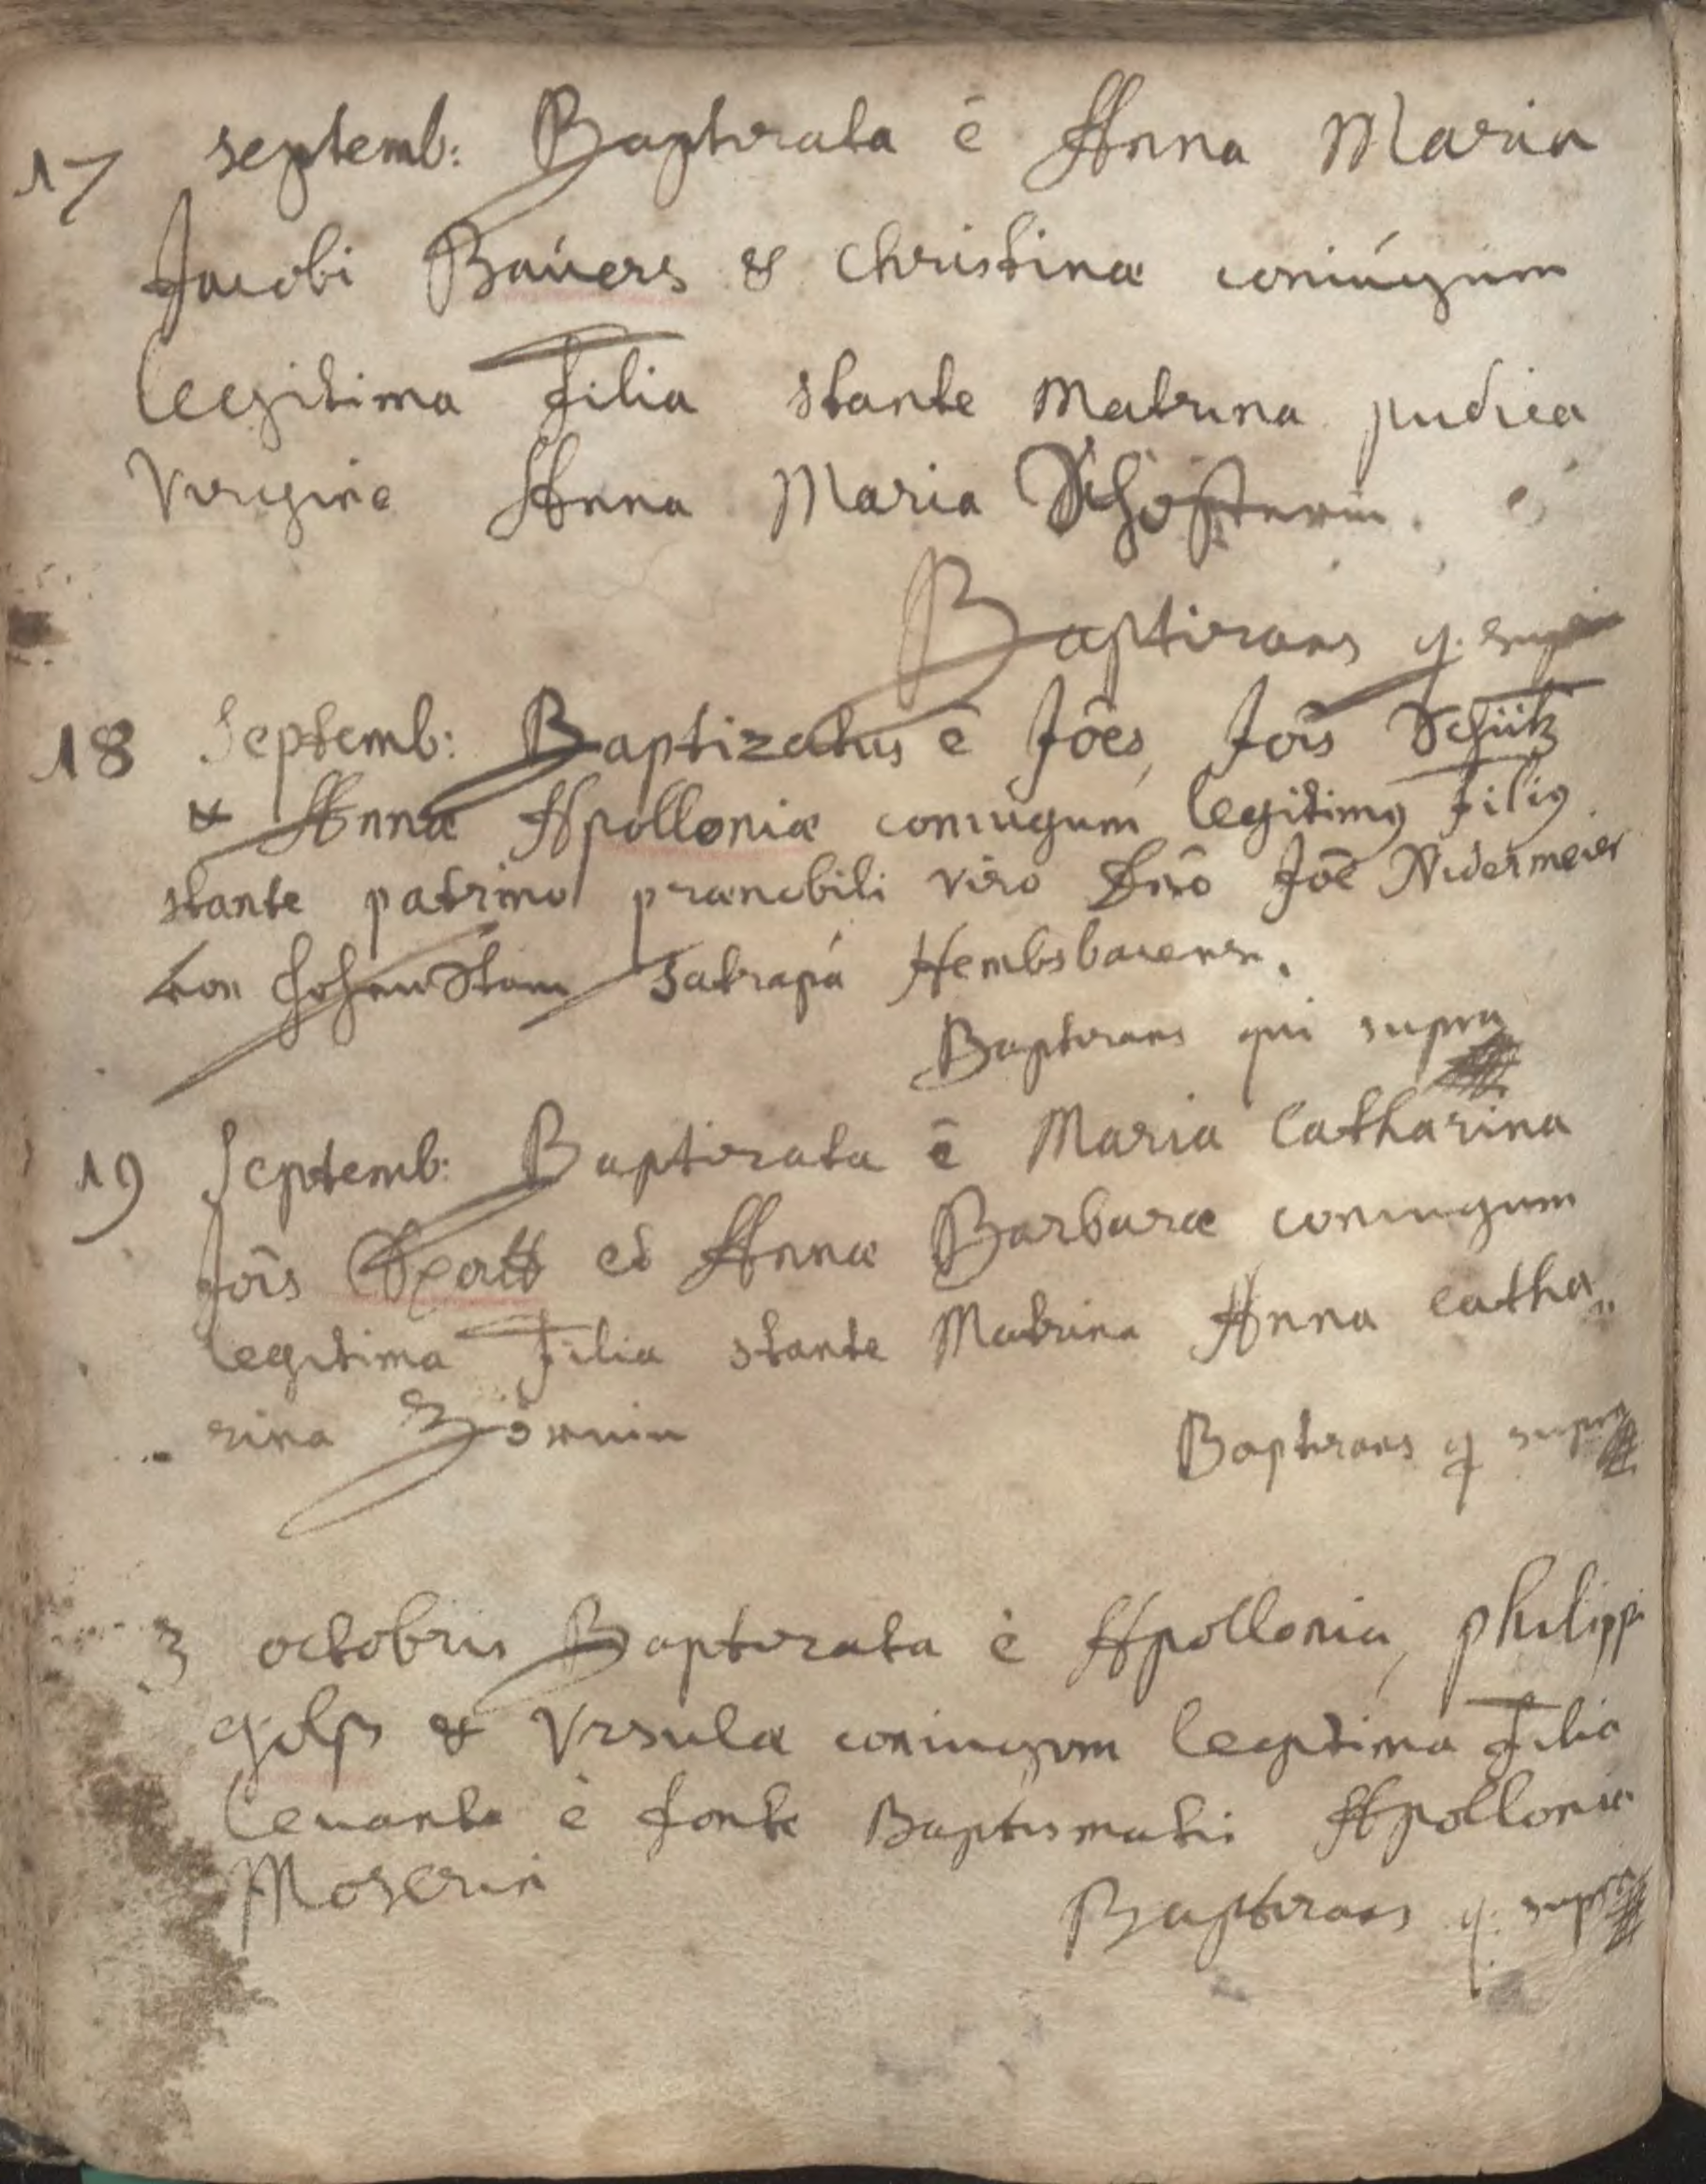 17 septemb: Baptizata ē Anna Maria
Jacobi Baúers & Christinæ coniúgum
legitima Filia stante Matrina pudica
Virgine Anna Maria Schösterin.
Baptizans q. supra
18 Septemb: Baptizatus ē Jões, Jõis Schütz
& Annæ Apolloniæ coniugum legitimꝰ Filiꝰ
stante patrino prænobili viro Dnō Jōe Nidermeier
von Satrapa Hembsbacensi.
Baptizans qui supra
19 Septemb: Baptizata ē Maria Catharina
Jõis et Annæ Barbaræ coniugum
legitima Filia stante Matrina Anna Catha„
„ rina
Baptizans q supra
3 octobris Baptizata ē Apollonia, philippi
golß & Vrsulæ coniugum legitima Filia
leuante è fonte Baptismatis Apollonia
Moserin
Baptizans q. supra